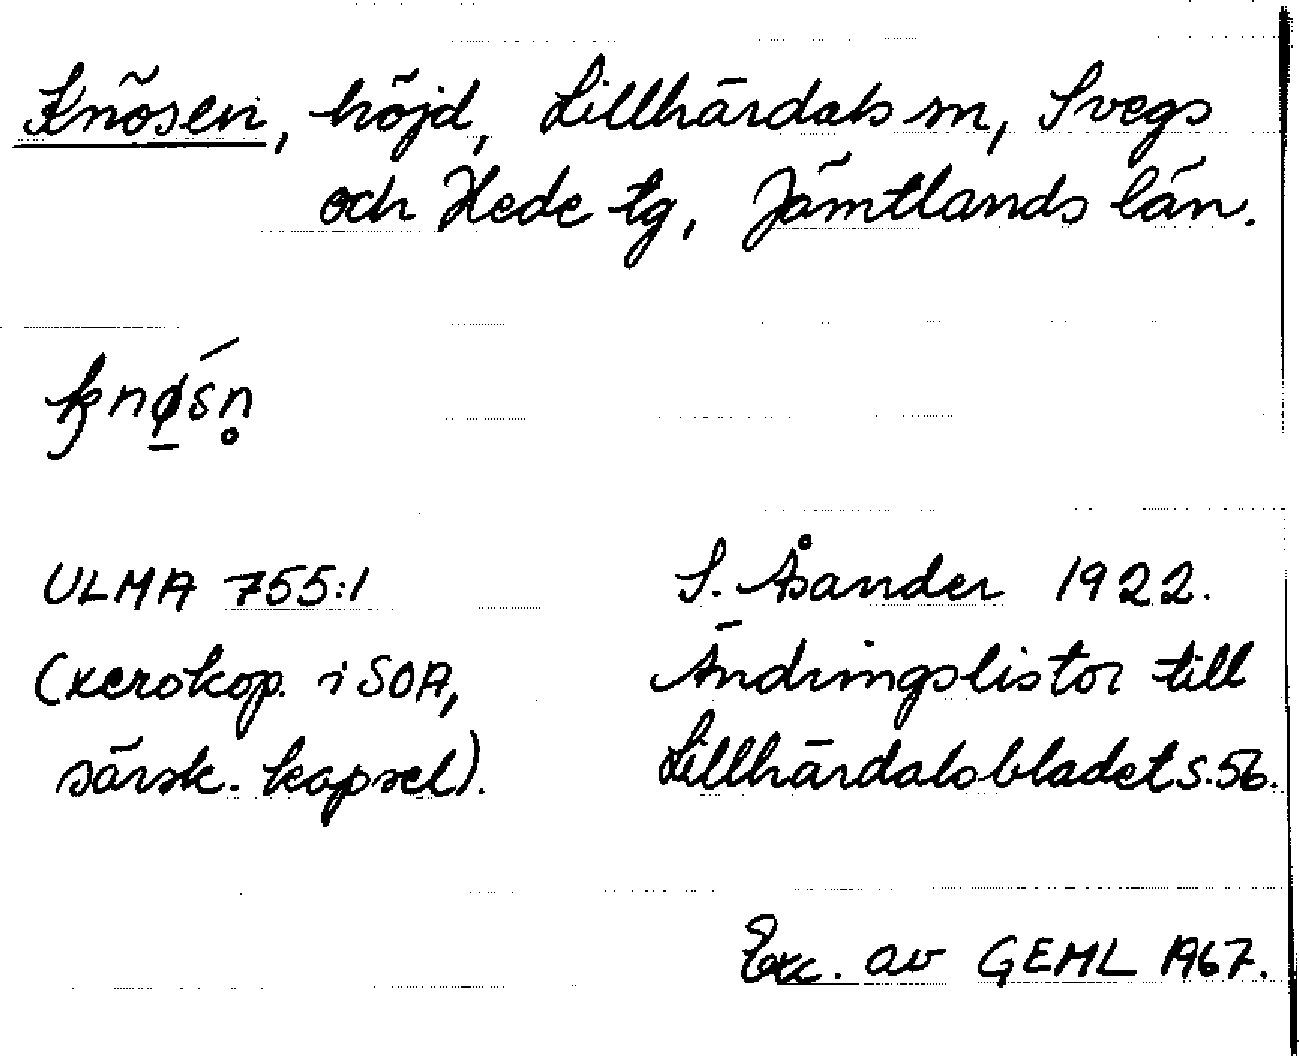 Knösen, höjd, Lillhärdals sn, Svegs
och Hede tg, Jämtlands län.
knø̠śn̥
ULMA 755:1
S. Åsander 1922.
(xerokop. i SOA,
Ändringslistor till
särsk. kapsel).
Lillhärdalsbladet s.56.
Exc. av GEML 1967.